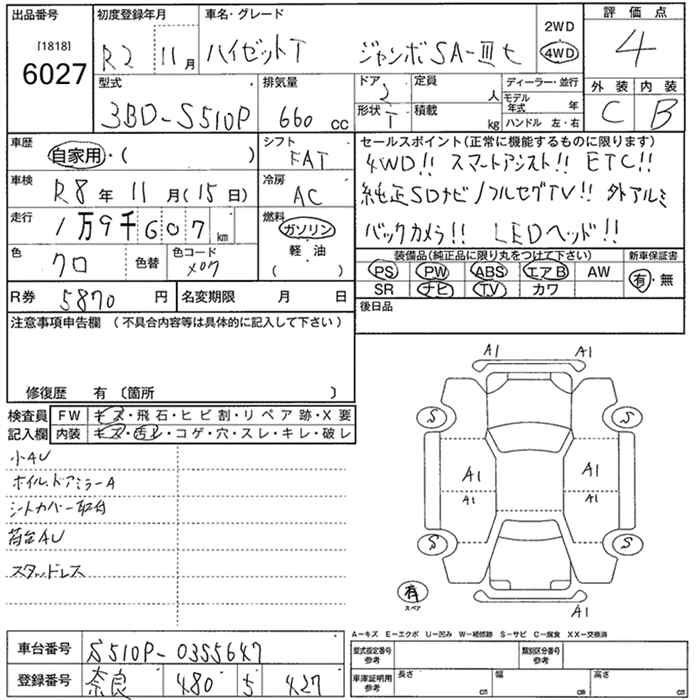 出品番号
[1818]
6027
初度登録年月
R2 11月
車名・グレード
ハイゼットT ジャンボSA-Ⅲt
2WD
4WD
評価点
4
外装 内装
C B
型式
3BD-S510P
排気量
660 cc
ドア
2
定員
人
ディーラー・並行
モデル年式 年
ハンドル 左・右
形状
T
積載
kg
車歴
自家用・( )
シフト
FAT
車検
R8年11月(15日)
冷房
AC
走行
1万9千607 km
燃料
ガソリン
軽油
( )
色
クロ
色替
色コード
X07
R券 5870円
名変期限 月 日
セールスポイント(正常に機能するものに限ります)
4WD!! スマートアシスト!! ETC!!
純正SDナビ/フルセグTV!! 外アルミ
バックカメラ!! LEDヘッド!!
装備品(純正品に限り丸をつけて下さい)
PS PW ABS エアB AW
SR ナビ TV カワ
新車保証書
有・無
後日品
注意事項申告欄 (不具合内容等は具体的に記入して下さい)
修復歴 有 〔箇所 〕
検査員記入欄
FW キズ・飛石・ヒビ割・リペア跡・X要
内装 キズ・汚レ・コゲ・穴・スレ・キレ・破レ
小AU
ホイル、ドアミラーA
シートカバー取付
荷台AU
スタッドレス
A1 A1
S S
A1 A1
A1 A1
S S
有
スペア
A1
A-キズ E-エクボ U-凹み W-補修跡 S-サビ C-腐食 XX-交換済
車台番号 S510P-0355647
登録番号 奈良 480 う 427
型式指定番号
参考
類別区分番号
参考
車庫証明用
参考
長さ cm
幅 cm
高さ cm